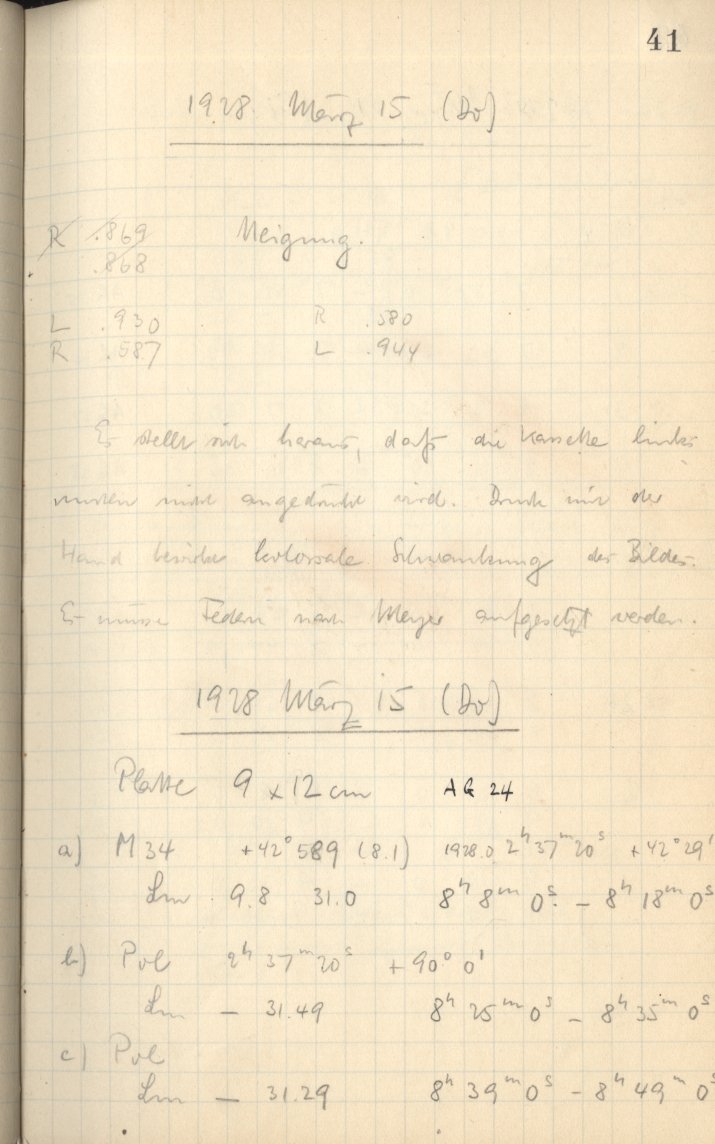 41
1928 März 15 (Do)
R .869 Neigung.
.868
L .930 R .580
R .587 L .944
Es stellt sich heraus, daß die Kassette links
unten nicht angedrückt wird. Druck mit der
Hand bewirkt kolossale Schwankung des Bildes.
Es müssen Federn nach Meyer aufgesetzt werden.
1928 März 15 (Do)
Platte 9 x 12 cm AG 24
a) M 34 +42° 589 (8.1) 1928.0 2ʰ 37ᵐ 20ˢ +42° 29'
Lm 9.8 31.0 8ʰ 8ᵐ 0ˢ – 8ʰ 18ᵐ 0ˢ
b) Pol 2ʰ 37ᵐ 20ˢ +90° 0'
Lm – 31.49 8ʰ 25ᵐ 0ˢ – 8ʰ 35ᵐ 0ˢ
c) Pol
Lm – 31.29 8ʰ 39ᵐ 0ˢ – 8ʰ 49ᵐ 0ˢ